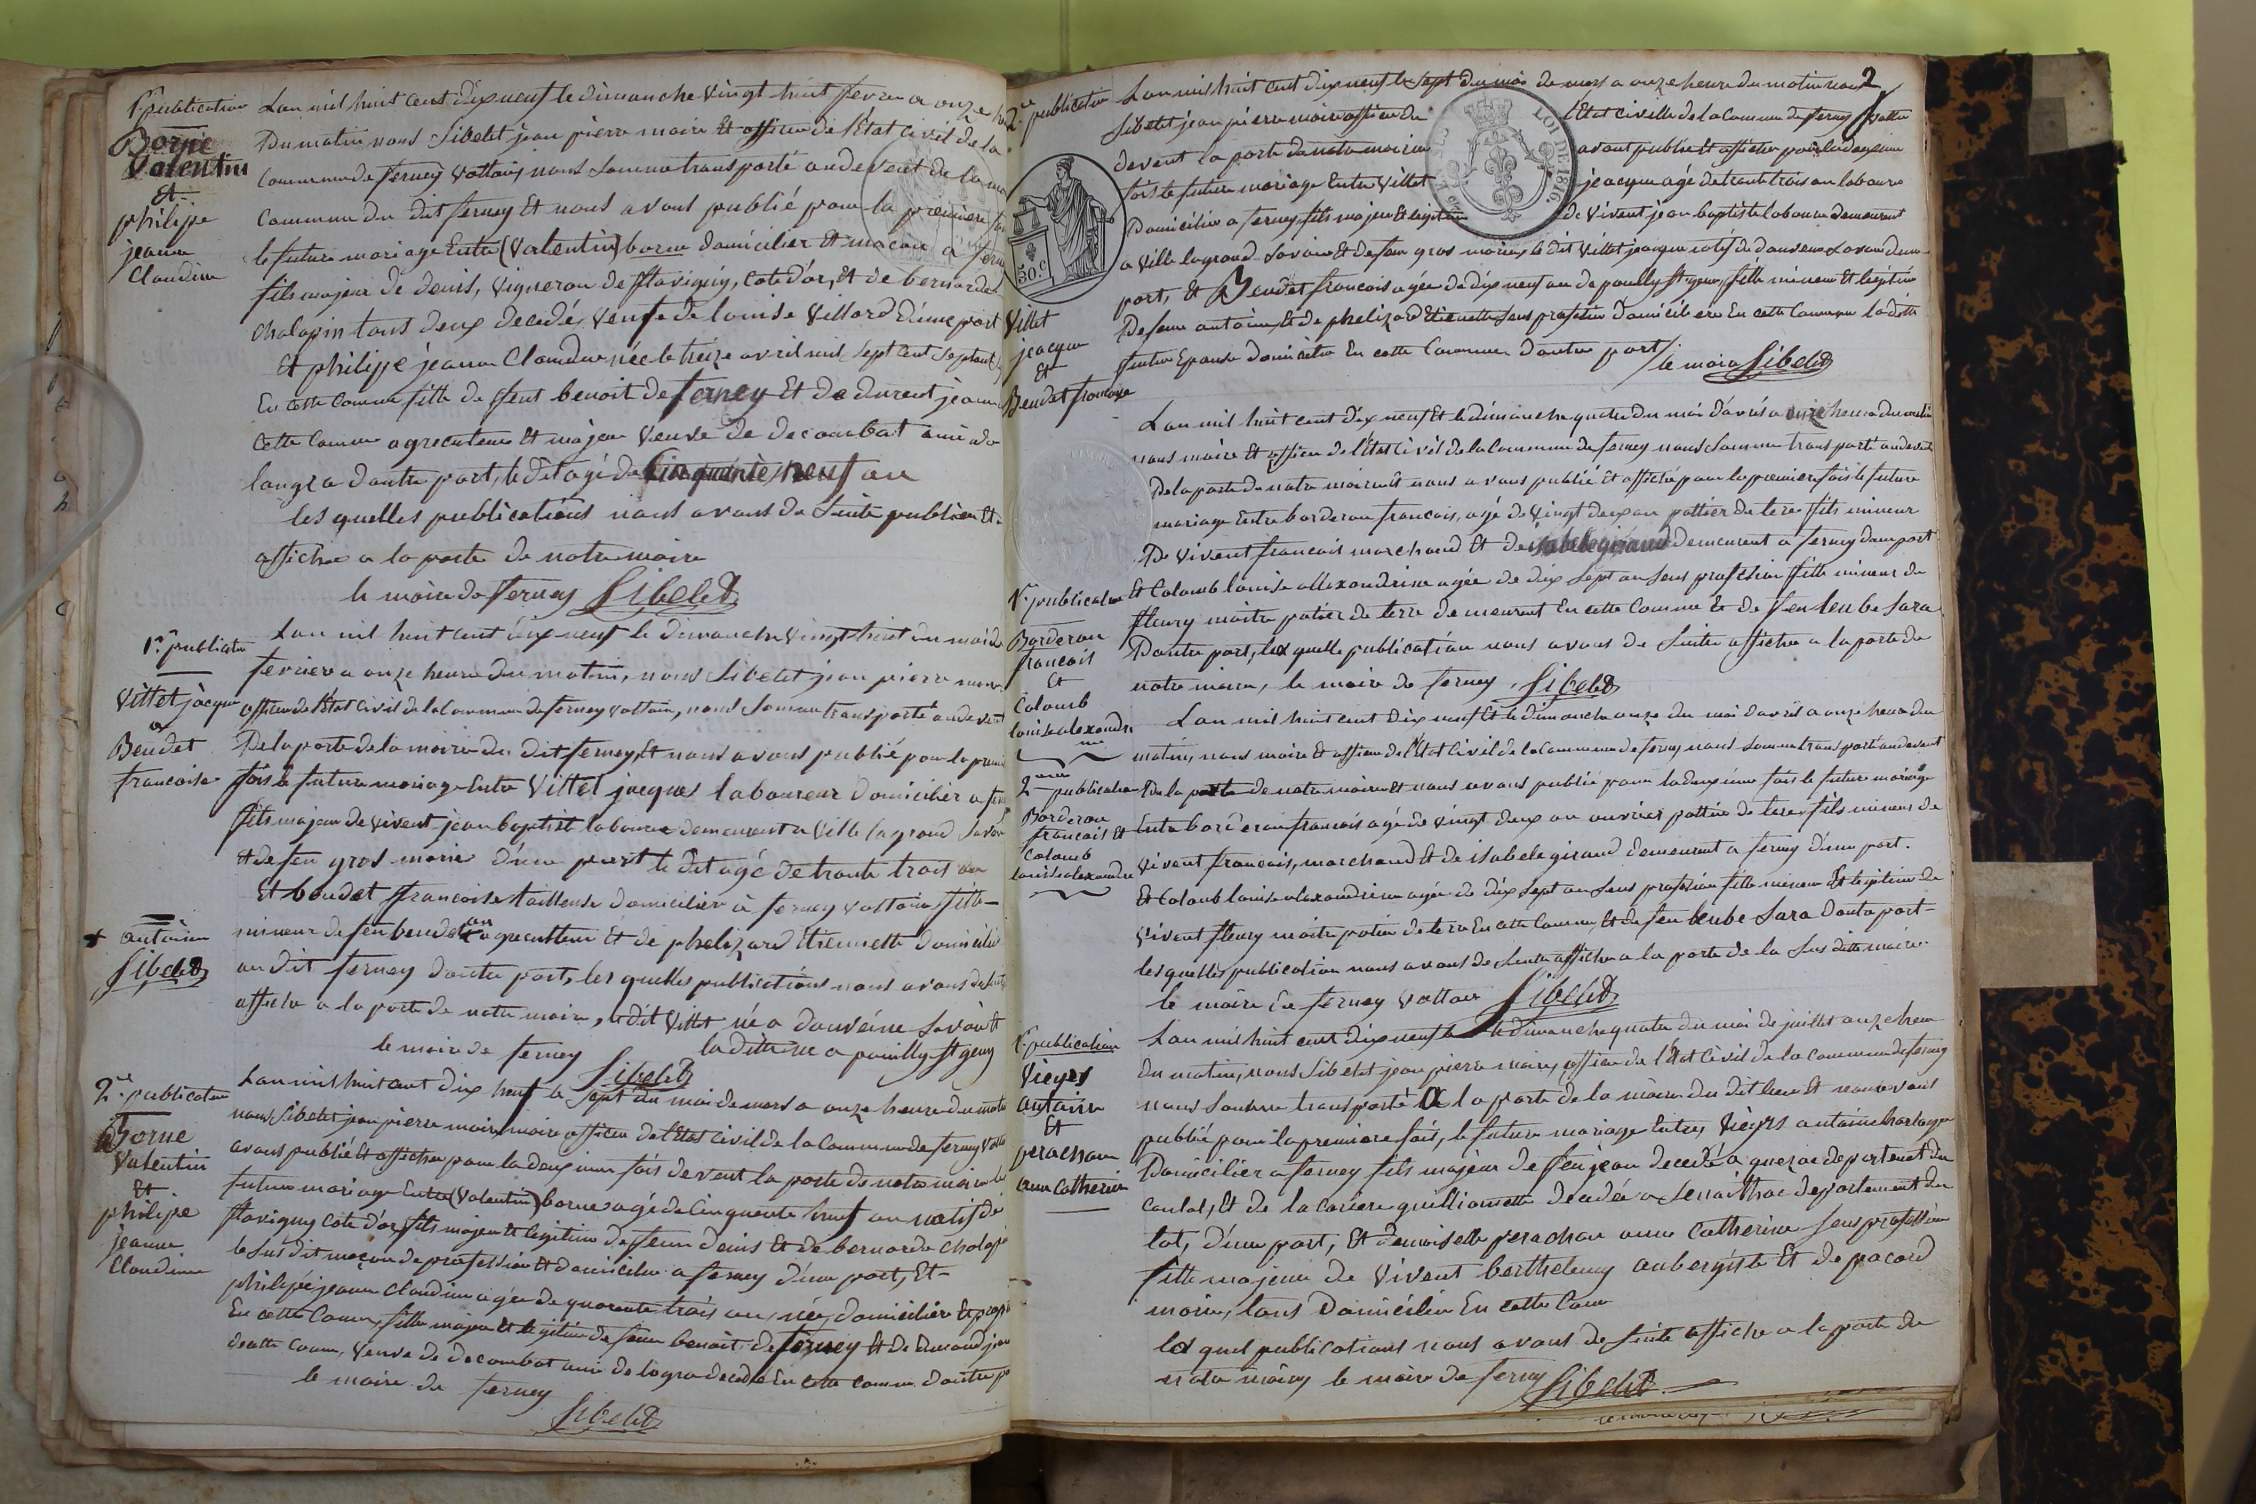 1re publication
Borne
Valentin
Et
philipe
jeanne
Claudine
Lan mil huit cent dix neuf le dimanche vingt huit fevrier a onze
Du matin nous Sibelet jean pierre maire Et officier de l'Etat civil de la
Commune de ferney Voltaire, nous somme transporté au devent de la
Commune du dit ferney Et nous avons publié pour la premiere
le future mariage Entre (Valentin) borne domicilier Et macon a
fils majeur de denis, vigneron de flavigny, cote d'or, Et de bernarde
chalopin tous deux decedé, veuf de louise Villard d'une part
Et philipe jeanne Claudine née le treize avril mil sept cent septante
En cette Comune fille de feut benoit de ferney Et de durent jeanne
Cette Comune agreculteure Et majeur veuve de decombat ami de
langra dautre part, le dit agé de Cinquante neuf an
les quelles publications nous avons de suite publier Et
affiche a la porte de notre maire
le maire de ferney Sibelet
1re publication
Villet jacque
Et
Beudet
francoise
Lan mil huit cent dix neuf le dimanche vingt huit du mois de
fevrier a onze heure du matin, nous Sibelet jean pierre maire
officier de l'Etat Civil de la Commune de ferney voltaire, nous Somme transporté au devent
De la porte de la maire du dit ferney, Et nous avons publié pour la premie
fois le future mariage Entre Villet jacques laboureur domicilier a
fils majeur de vivent jean baptiste laboureur demeurent a Ville la grand Savoi
Et de feu gros marie d'une part le dit agé de trente trois an
Et beudet francoise tailleuse domicilier à ferney voltaire, fille
mineur de feu beudet an agreculteur Et de phelizard Etiennette domicilié
au dit ferney dautre part, les quelles publications nous avons de suite
affiche a la porte de notre maire, le dit Villet né a douvéine Savoi Et
le maire de ferney Sibelet la ditte née a pouilly St geny
+ antoine
Sibelet
2e publication
Borne
Valentin
Et
philipe
jeanne
Claudine
Lan mil huit cent dix neuf le sept du mois de mars a onze heure du matin
nous Sibelet jean pierre maire, maire officier de l'Etat Civil de la Commune de ferney
avons publié Et afficher pour la deuxieme fois devent la porte de notre maire le
future mariage Entre (Valentin) borne agé de Cinquente neuf an natif de
flavigny cote d'or, fils majeur Et legitime de feu denis Et de bernarde
le sus dit maçon de profession Et domicilier a ferney d'une part, Et
philipe jeanne claudine agée de quarente trois an, née, domicilier Et
En cette Comune, fille majeur Et legitime de feu benoit de ferney Et de
de cette Comune, veuve de decombat ami de logra decedé En cette comune dautre
le maire de ferney
Sibelet
2
2e publication
Lan mil huit cent dix neuf le sept du mois de mars a onze heure du matin nous
Sibelet jean pierre maire officier de l'Etat civille de la Commune de ferney
devent la porte de notre mairie avont publié Et afficher pour la deuxieme
LOI DE 1816.
50.c
fois le future mariage Entre Villet jeacque agé de trente trois an laboure
Domicilier a ferney, fils majeur Et legitime de vivent jean baptiste laboureur demeurent
a Ville la grand Savoi Et de feu gros marie, le dit Villet jacque natif de douvenne Savoi d'une
part, Et Beudet francois agée de dix neuf an de pouilly St geny, fille mineur Et legitime
De feu antoine Et de phelizard Etiennette sans profesion domicilière En cette Commune la ditte
future Epouse domicilie En cette Commune dautre part / le maire Sibelet
Villet
jeacque
Et
Beudet francoise
Lan mil huit cent dix neuf Et le dimanche quatre du mois d'avril a onze heure du matin
nous maire Et officier de l'Etat civil de la Commune de ferney nous Somme transporté au devent
De la porte de notre mairie Et nous avons publié Et affiché pour la premiere fois le future
mariage Entre borderon francois, agé de vingt deux an pottier de tere fils mineur
De vivent francois marchand Et de isabele girand demeurent a ferney dune part
Et Colomb louise allexandrine agée de dix sept an Sens profesion fille mineur de
fleury maitre potier de tere demeurent En cette Comune Et de feu leube Sara
Dautre part, les quelle publication nous avons de suite affiche a la porte de
notre maire, le maire de ferney, Sibelet
1re publication
Borderon
francois
Et
Colomb
louise alexandri
ne
Lan mil huit cent dix neuf Et le dimanche onze du moi davril a onze heure du
matin, nous maire Et officier de l'Etat Civil de la Commune de ferney nous Somme transporté au devent
De la porte de notre mairie Et nous avons publié pour la deuxieme fois le future mariage
Entre borderon francois agé de vingt deux an ouvrier pottier de tere fils mineur de
vivent francois, marchand Et de isabele girand demeurent a ferney d'une part.
Et Colomb louise alexandrine agée de dix sept an Sens profesion fille mineur Et legitime de
vivent fleury maitre potier de tere En cette Comune, Et de feu leube Sara Dautre part
les quelles publication nous avons de Suite affiche a la porte de la Sus ditte maire
le maire de ferney voltaire Sibelet
2eme publication
Borderon
francois Et
Colomb
louise alexandre
1re publication
Vieyes
antoine
Et
perachon
anne Catherine
Lan mil huit cent dix neuf le dimanche quatre du moi de juillet a onze heure
du matin, nous Sibelet jean pierre maire, officier de l'Etat Civil de la commune de ferney
nous Somme transporté a la porte de la maire du dit lieu Et nous avons
publié pour la premiere fois, le future mariage Entre, Vieyes antoine horloger
Domicilier a ferney fils majeur de feu jean decedé a departement du
cantal, Et de la decedée a departement du
lot, d'une part, Et demoiselle perachon anne Catherine Sens profession
fille majeure de vivent berthelemy aubergiste Et de pacard
marie, tous Domicilier En cette Comune
les quel publications nous avons de Suite affiche a la porte de
notre maire, le maire de ferney Sibelet